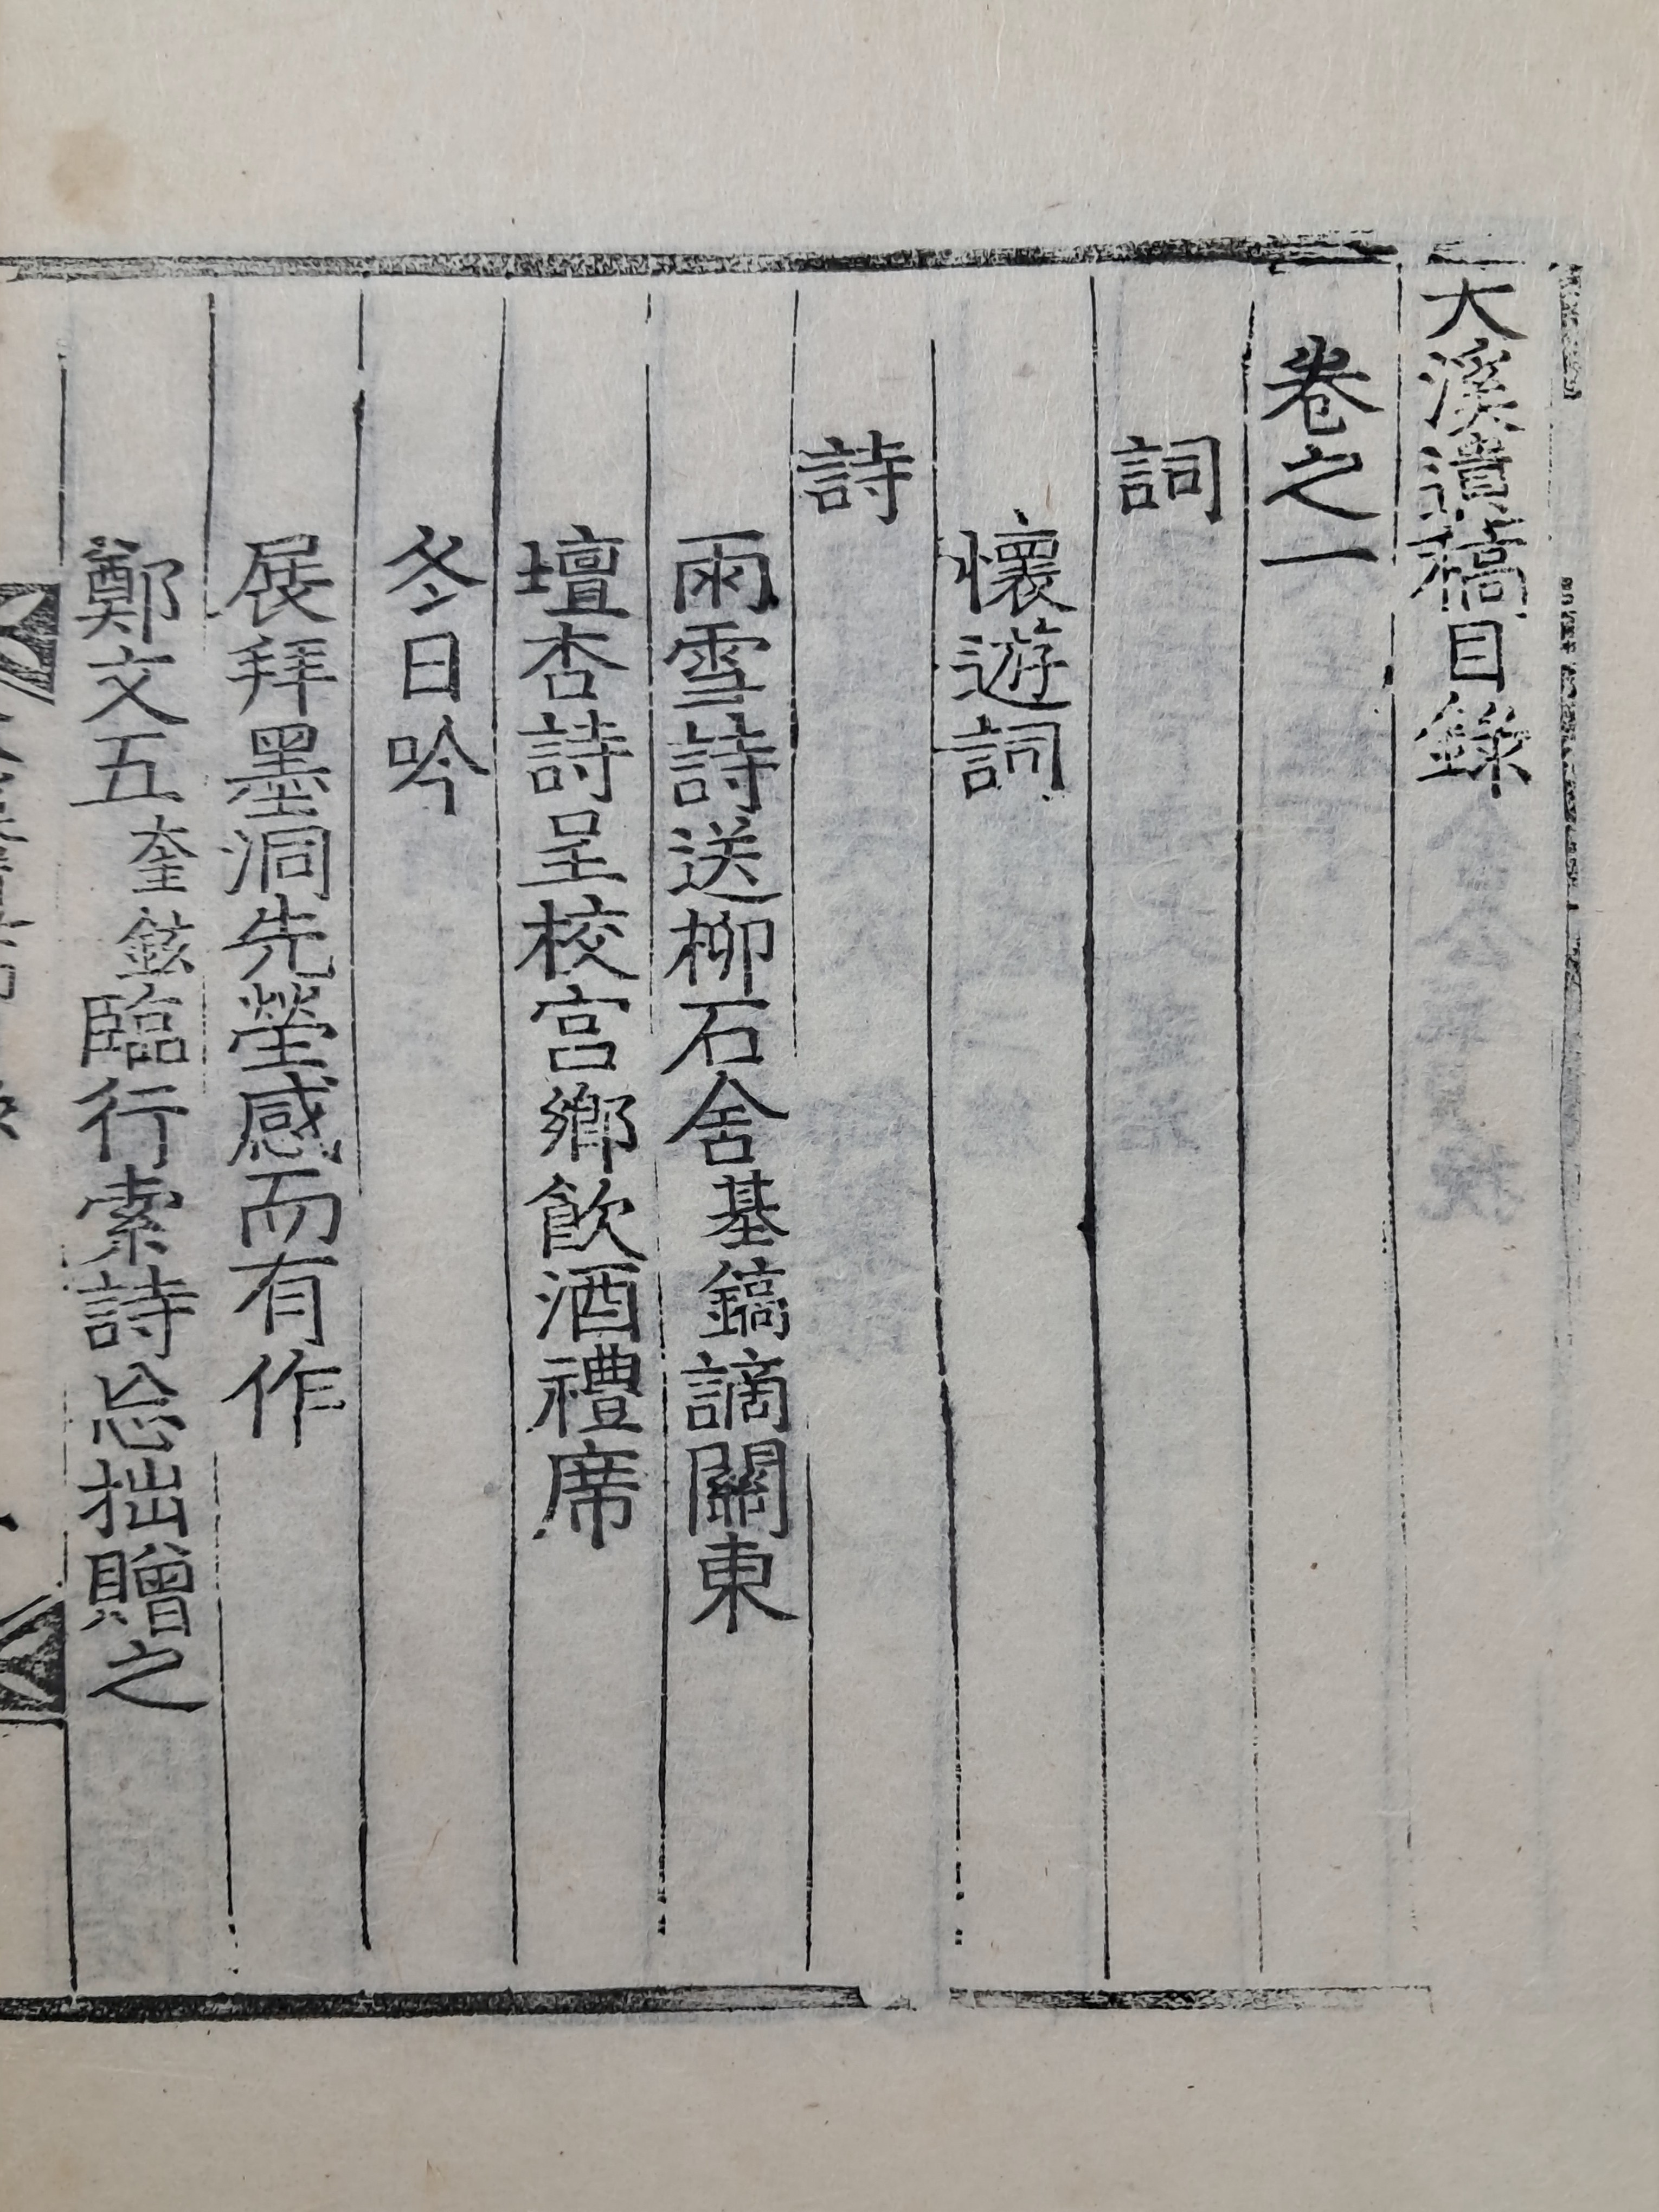 大溪遺稿目錄
卷之一
詞
懷遊詞
詩
雨雪詩送柳石舍基鎬謫關東
壇杏詩呈校宮鄉飮酒禮席
冬日吟
展拜墨洞先塋感而有作
鄭文五奎鉉臨行索詩忘拙贈之